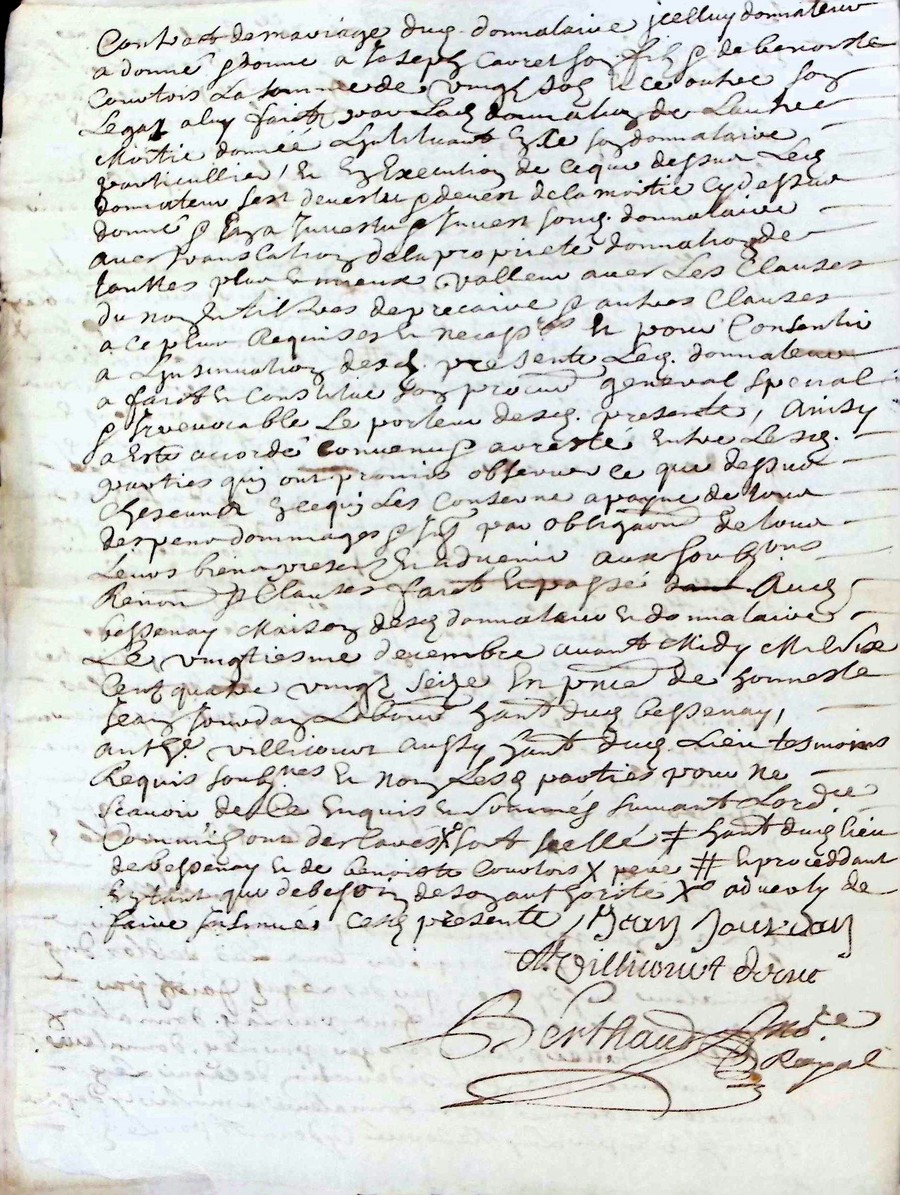 Contract de mariage dud. donnataire jcelluy donnateur
a donné & donne a Joseph Cavret son fils & de benoiste
Courtois La somme de vingt sols En ce outre son
Legat a luy faict par Lad donnation de Lautre
Moitié donnée Instituant En Ce son donnataire
particullier, Et En Execution de ce que dessus Led
donnateur sest devestu & devest de la moitié cy dessus
donné & En a Investu & Invest sond. donnataire
avec translation de la proprieté donnation de
touttes plus Et mieux valleur avec Les Clauses
du nom Et tiltres de precaire & autres Clauses
a ce plus Requises Et necess.res Et pour Consentir
a Lynsinuation desd. presente Led. donnateur
a faict Et Constitué son procur general special
& Irrevocable Le porteur desd. presente, Ainsy
a Esté accordé Convenu & arresté Entre Lesd.
parties qui ont promis observer ce que dessus
Chescune En ce qui Les Conserne a payne de tous
despens dommages & Int par obligaon de tous
Leurs biens presents Et advenir aux soubons
Renon & Clauses faict Et passé Aud
bessenay Maison desd donnateur Et donnataire
Le vingtiesme decembre avant Midy Mil Six
Cent quatre vingt seize En pnce de honneste
Jean Jourdan Labour hant dud bessenay,
anthe. villicourt aussy hant dud. Lieu tesmoins
Requis soubnes Et non Lesd parties pour ne
scavoir de Ce Enquis Ensommés suivant Lord.ce
Commis sont desclavés X soit scellé # hant dud lieu
de bessenay Et de benoiste Courtois X pere # Et proceddant
Entant que de besoin de son authorité X adverty de
faire Insinuer cesd presente, Jean Jourdan
A Villicourt
Berthaud No.re
Royal